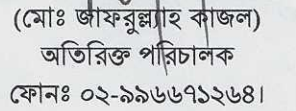 (মোঃ জাফরুল্ল্যাহ কাজল)
অতিরিক্ত পরিচালক
ফোনঃ ০২-৯৯৬৬৭১২৬৪।